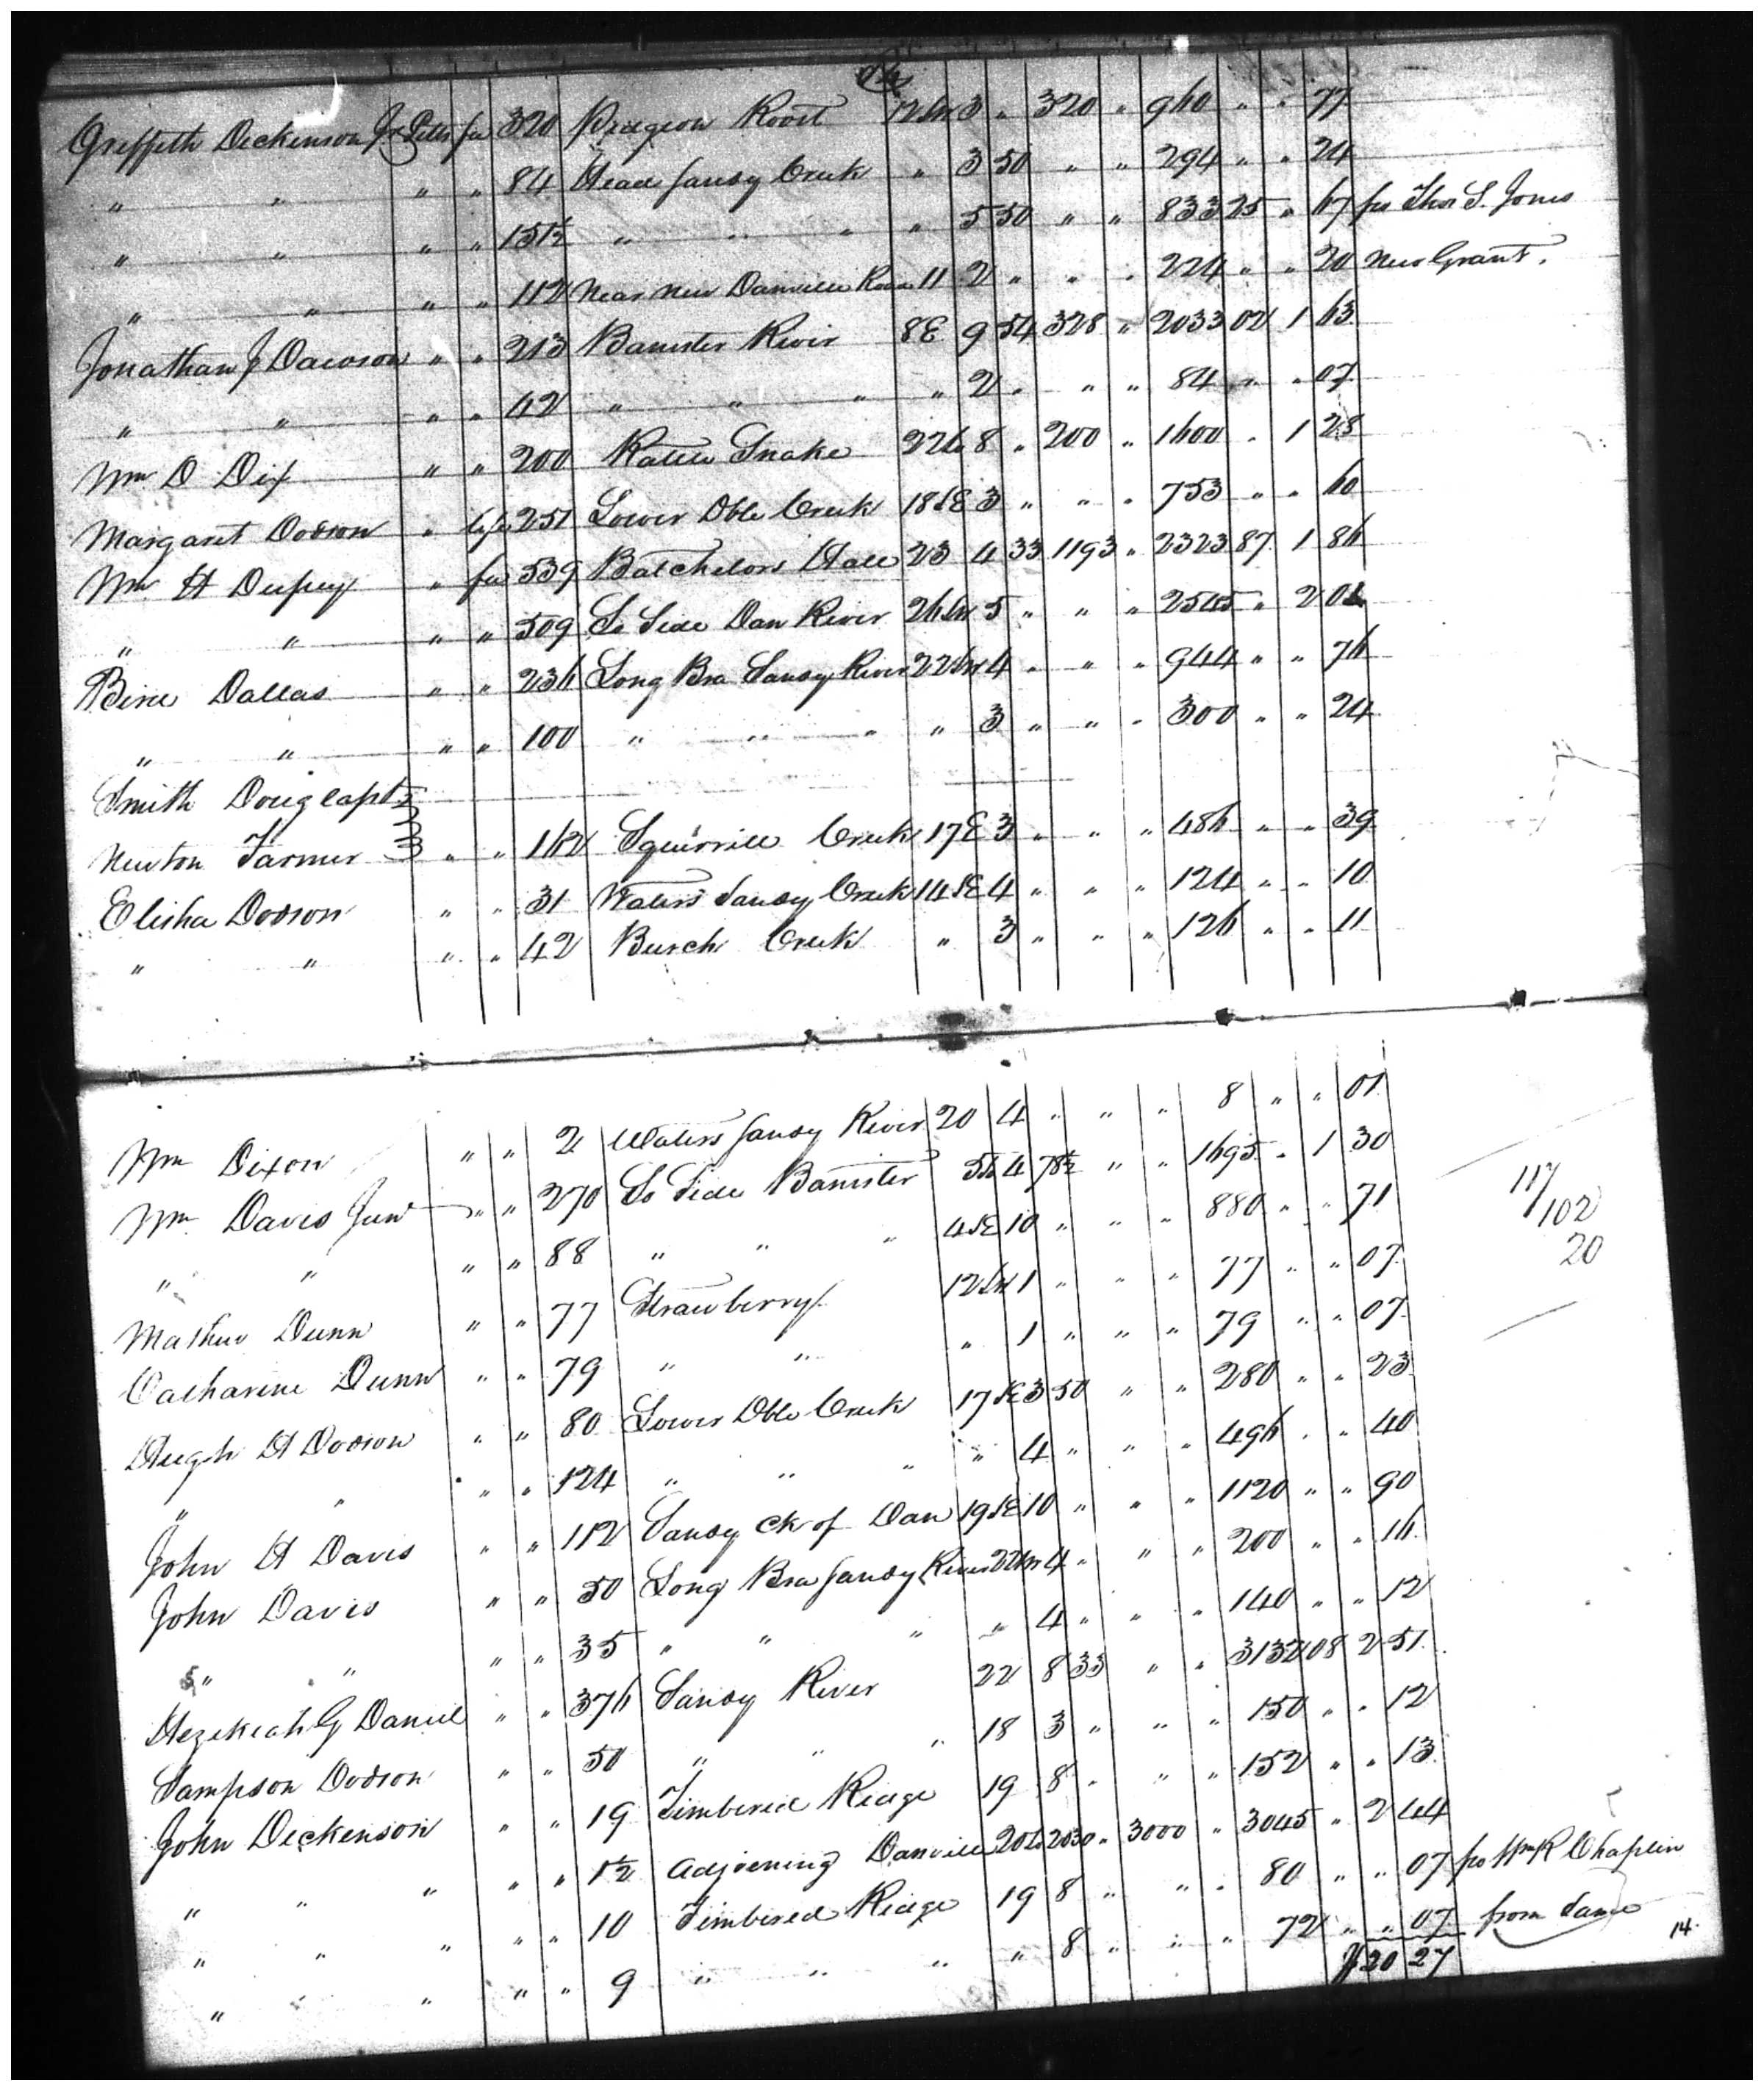 Griffith Dickenson Jr Pitts fee 320 Pidgeon Roost 12 SW 3 " 320 " 960 " " 77
" " " " 84 Head Sandy Creek " 3 50 " " 294 " " 24
" " " " 151½ " " " " 5 50 " " 833 25 " 67 fr Thos S. Jones
" " " " 112 Near New Danville Road 11 2 " " " 224 " " 20 New Grant.
Jonathan J Dawson " " 213 Banister River 8E 9 54 328 " 2033 02 1 63
" " " " 42 " " " " 2 " " " 84 " " 07
Wm D Dix " " 200 Rattle Snake 22 8 " 200 " 1600 " 1 28
Margaret Dodson " life 251 Lower Dble Creek 18 SE 3 " " " 753 " " 60
Wm H Dupuy " fee 539 Batchelors Hall 23 4 33 1193 " 2323 87 1 86
" " " " 509 So Side Dan River 26 SW 5 " " " 2545 " 2 04
Bird Dallas " " 236 Long Bra Sandy River 22 SW 4 " " " 944 " " 76
" " " " 100 " " " " 3 " " " 300 " " 24
Smith Douglass &
Newton Farmer " " 162 Squirrill Creek 17E 3 " " " 486 " " 39
Elisha Dodson " " 31 Waters Sandy Creek 14 SE 4 " " " 124 " " 10
" " " " 42 Burch Creek " 3 " " " 126 " " 11
Wm Dixon " " 2 Waters Sandy River 20 4 " " " 8 " " 01
Wm Davis Junr " " 270 So Side Banister 4 78½ " " 1695 " 1 30
" " " " 88 " " " 4 SE 10 " " " 880 " " 71
Mathew Dunn " " 77 Strawberry 12 SW 1 " " " 77 " " 07
Catharine Dunn " " 79 " " " 1 " " " 79 " " 07
Hugh H Dodson " " 80 Lower Dble Creek 17 SE 3 50 " " 280 " " 23
" " " " 124 " " " " 4 " " " 496 " " 40
John H Davis " " 112 Sandy Ck of Dan 19 SE 10 " " " 1120 " " 90
John Davis " " 50 Long Bra Sandy River 22 SW 4 " " " 200 " " 16
" " " " 35 " " " " 4 " " " 140 " " 12
Hezekiah G Daniel " " 376 Sandy River 22 8 33 " " 3132 08 2 51
Sampson Dodson " " 50 " " " 18 3 " " " 150 " " 12
John Dickenson " " 19 Timbered Ridge 19 8 " " " 152 " " 13
" " " " " 1½ Adjoining Danville 20 2030 " 3000 " 3045 " 2 44
" " " " " 10 Timbered Ridge 19 8 " " " 80 " " 07 fr Wm R Chaplin
" " " " " 9 " " " " 8 " " " 72 " " 07 from Same
$20 27
117
102
20
14